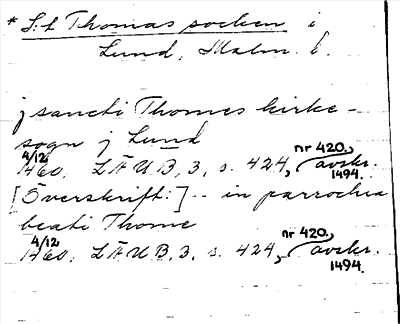 * S:t Thomas socken i
Lund, Malm. l.
j sancti Thomes kirke-
sogn j Lund
4/12 1460. LÄUB, 3, s. 424, nr 420., avskr. 1494.
[Överskrift:] -- in parrochia
beati Thome
4/12 1460. LÄUB, 3, s. 424, nr 420., avskr. 1494.